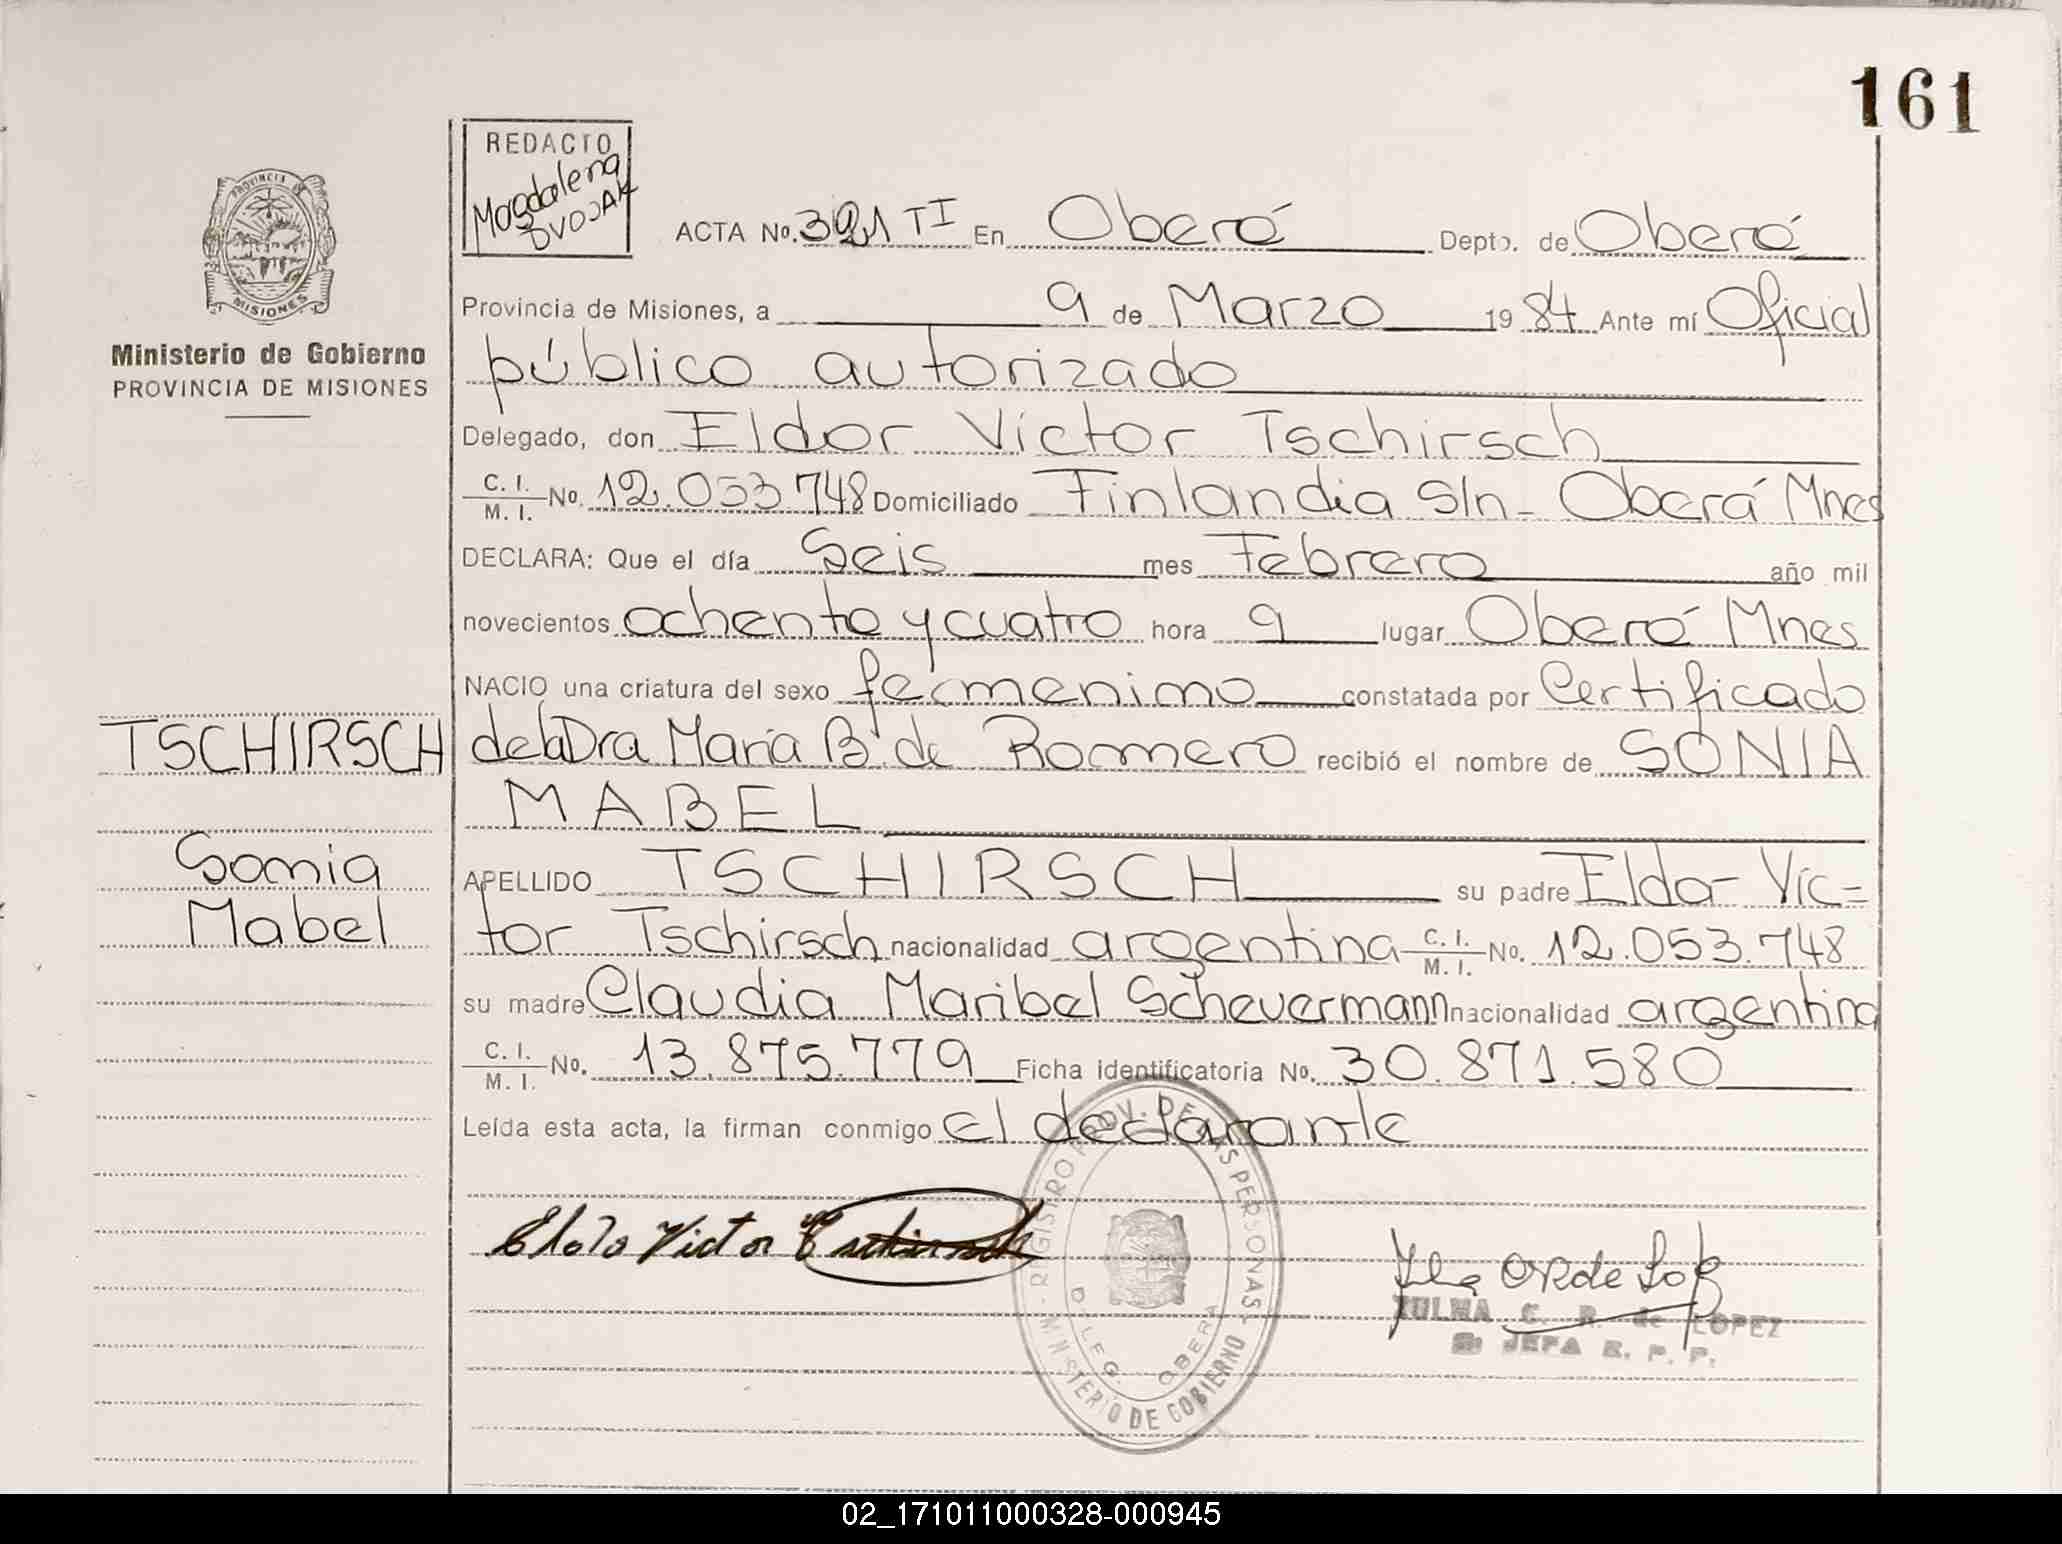 161
REDACTO
Magdalena
DVOJAK
PROVINCIA DE
MISIONES
ACTA No. 321 TI En Oberá Depto. de Oberá
Provincia de Misiones, a 9 de Marzo 1984 Ante mí Oficial
público autorizado
Ministerio de Gobierno
PROVINCIA DE MISIONES
Delegado, don Eldor Víctor Tschirsch
C. I. / M. I. No. 12.053.748 Domiciliado Finlandia S/n - Oberá Mnes
DECLARA: Que el día Seis mes Febrero año mil
novecientos ochenta y cuatro hora 9 lugar Oberá Mnes
NACIO una criatura del sexo femenino constatada por Certificado
de la Dra María B. de Romero recibió el nombre de SONIA
MABEL
TSCHIRSCH
Sonia
Mabel
APELLIDO TSCHIRSCH su padre Eldo- Víc=
tor Tschirsch nacionalidad argentina C. I. / M. I. No. 12.053.748
su madre Claudia Maribel Scheuermann nacionalidad argentina
C. I. / M. I. No. 13.875.779 Ficha identificatoria No. 30.871.580
Leída esta acta, la firman conmigo el declarante
REGISTRO PROV. DE LAS PERSONAS
MINISTERIO DE GOBIERNO
DELEG. OBERA
Victor
ZULMA C. R. de LOPEZ
JEFA R. P. P.
02_171011000328-000945